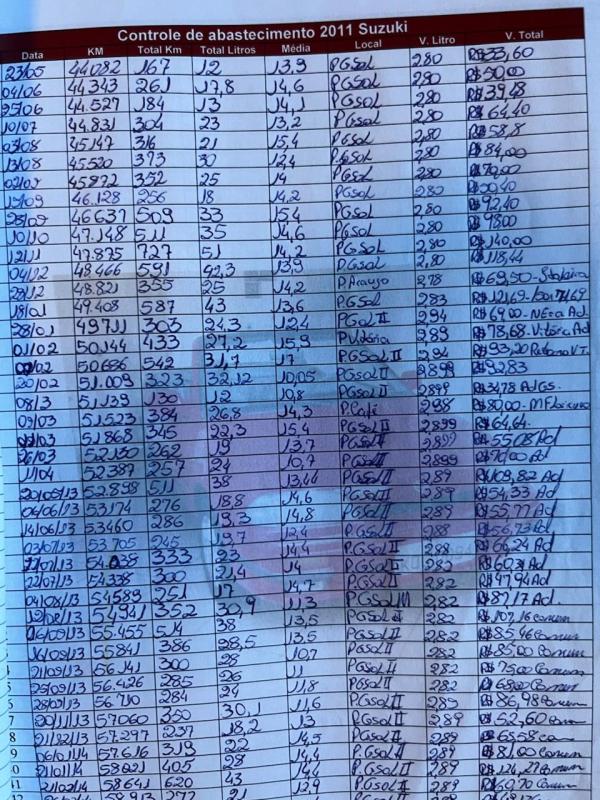 Controle de abastecimento 2011 Suzuki
Data KM Total Km Total Litros Média Local V. Litro V. Total
23/05 44.082 167 12 13,9 PGSol 2,80 R$33,60
04/06 44.343 261 17,8 14,6 PGSol 2,80 R$50,00
25/06 44.527 184 13 14,1 PGSol 2,80 R$39,48
10/07 44.831 304 23 13,2 PGSol 2,80 R$64,40
03/08 45.147 316 21 15,4 PGSol 2,80 R$58,8
13/08 45.520 373 30 12,4 P.GSol 2,80 R$84,00
02/09 45.872 352 25 14 PGSol 2,80 R$70,00
19/09 46.128 256 18 14,2 PGSol 2,80
46.637 509 33 15,4 PGSol 2,80 R$92,40
10/10 47.148 511 35 14,6 PGSol 2,80 R$98,00
12/11 47.875 727 51 14,2 PGSol 2,80 R$140,00
04/12 48.466 591 42,3 13,9 P.GSol 2,80 R$118,44
28/12 48.821 355 25 14,2 P.Araujo 2,78 R$69,50
18/01 49.408 587 43 13,6 PGSol 2,83
28/01 49711 303 24,3 12,4 PGol II 2,94 R$69,00 Ad.
01/02 50.144 433 27,2 15,9 P.Vitória 2,89 R$78,68 Ad
02/02 50.686 542 31,7 17 PGSol II 2,94 R$93,20
20/02 51.009 323 32,12 10,05 PGSol II 2,899 R$92,83
08/3 51.139 130 12 10,8 PGSol II 2,899 R$34,78
09/03 51.523 384 26,8 14,3 P.Café 2,98 R$80,00
51.868 345 22,3 15,4 PGSol II 2,899 R$64,64
26/03 52.130 262 19 13,7 PGSol II 2,899 R$55,08 Ad
11/04 52.387 257 24 10,7 PGSol II 2,899 R$70,00 Ad
20/05/13 52.898 511 38 13,44 PGSol II 2,89 R$109,82 Ad
04/06/13 53.174 276 18,8 14,6 PGSol II 2,89 R$54,33 Ad
14/06/13 53.460 286 19,3 14,8 P.GSol II 2,89 R$55,77 Ad
03/07/13 53.705 245 19,7 12,4 P.GSol II 2,88 R$56,73 Ad
54.038 333 23 14,4 P.GSol II 2,88 R$66,24 Ad
22/07/13 54.338 300 21,4 14 P.GSol II 2,82 Ad
04/08/13 54.589 251 17 14,7 P.GSol II 2,82 R$47,94 Ad
54.941 352 30,9 11,3 PGSol 2,82 R$87,17 Ad
16/09/13 55.455 514 38 13,5 P.GSol II 2,82 R$107,16 comum
16/09/13 55841 386 28,5 13,5 PGSol II 2,82 R$85,46 Comum
21/09/13 56.141 300 28 10,7 P.GSol II 2,82 R$85,00 Comum
25/09/13 56.426 285 26 11 P.GSol II 2,82 R$75,00 Comum
28/09/13 56.710 284 24 11,8 PGSol II 2,82 Comum
20/11/13 57060 350 30,1 11,6 P.GSol II 2,89 R$86,98 Comum
21/12/13 57.297 237 18,2 13 P.GSol II 2,89 R$52,60 Comum
06/01/14 57.616 319 22 14,5 P.GSol II 2,89 R$63,58 Com
58021 405 28 14,4 P.GSol II 2,89 R$81,00 Comum
21/02/14 58.641 620 43 14,4 P.GSol II 2,89 R$124,27 Comum
58.913 272 21 12,9 P.GSol II 2,89 R$60,70 Comum